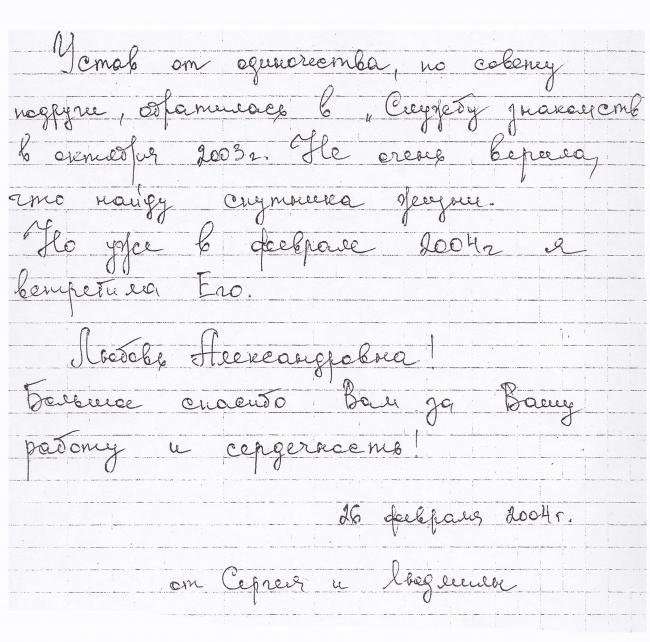 Устав от одиночества, по совету
подруги, обратилась в „Службу знакомств
в октября 2003г. Не очень верила,
что найду спутника жизни.
Но уже в феврале 2004г я
встретила Его.
Любовь Александровна!
Большое спасибо Вам за Вашу
работу и сердечность!
26 февраля 2004г.
от Сергея и Людмилы